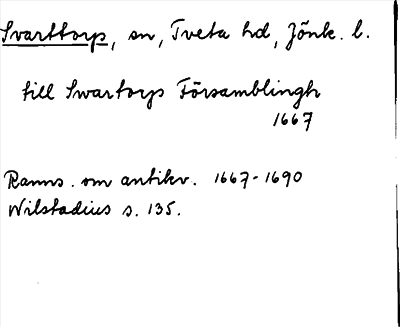 Svarttorp, sn, Tveta hd, Jönk. l.
till Swartorps Församblingh
1667
Ranns. om antikv. 1667-1690
Wilstadius s. 135.